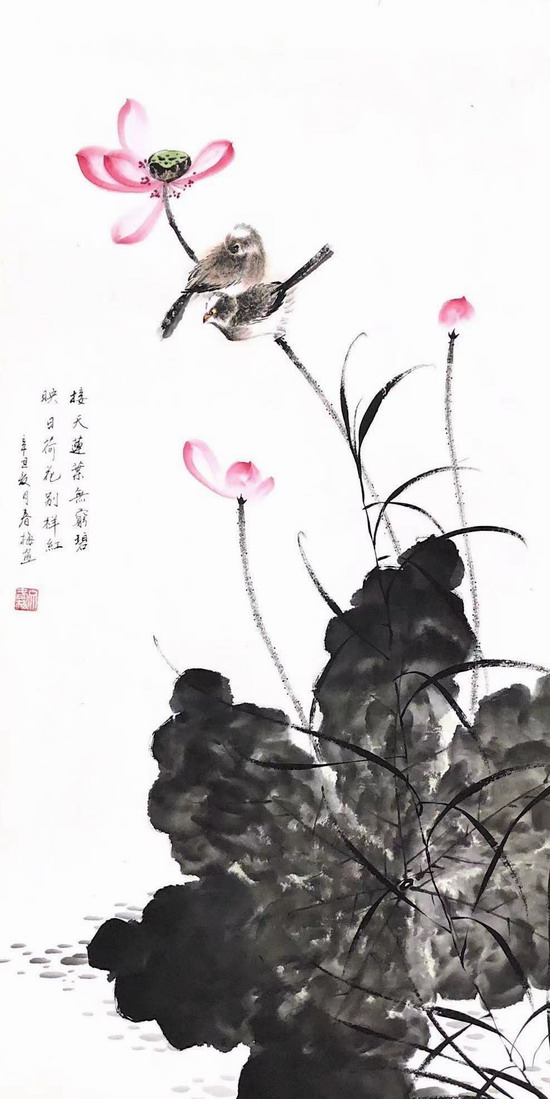 接天蓮葉無窮碧
映日荷花別樣紅
辛丑牧月春梅画